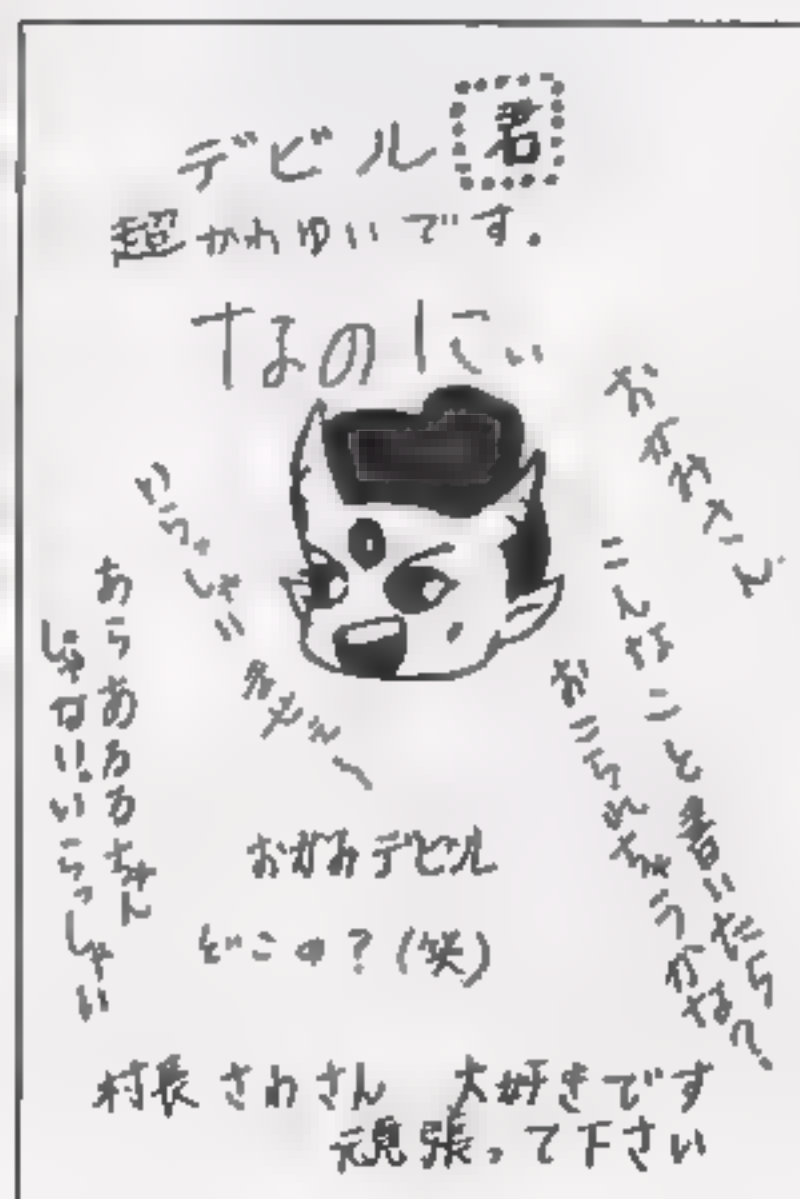 デビル君
超かわゆいです。
なのにぃ
おかみさん
こんなこと書いたら
おこられちゃうかな〜。
いらっしゃい
あらあるるちゃん
じゃない!いらっしゃい
おかみデビル
どこの?(笑)
村長さわさん 大好きです
頑張って下さい